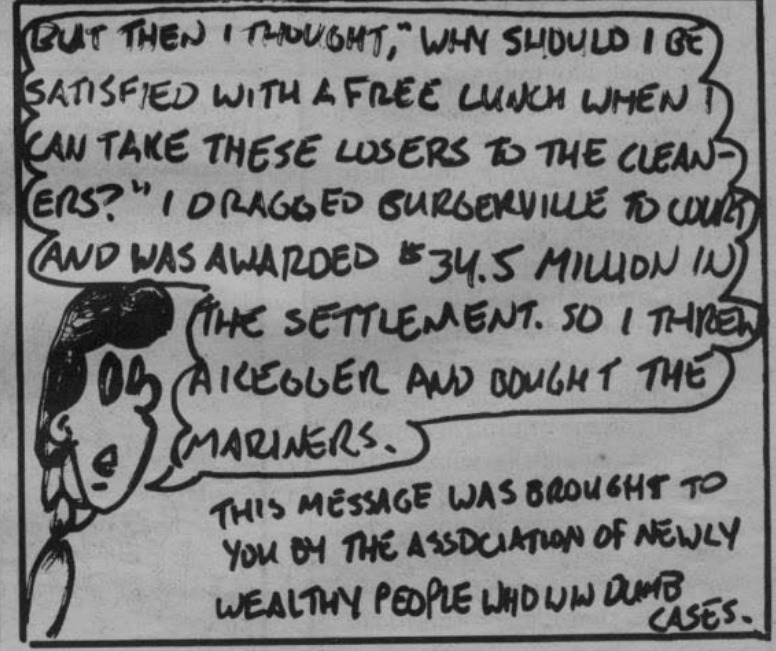 BUT THEN I THOUGHT, "WHY SHOULD I BE
SATISFIED WITH A FREE LUNCH WHEN I
CAN TAKE THESE LOSERS TO THE CLEAN-
ERS?" I DRAGGED BURGERVILLE TO COURT
AND WAS AWARDED $34.5 MILLION IN
THE SETTLEMENT. SO I THREW
A KEGGER AND BOUGHT THE
MARINERS.
THIS MESSAGE WAS BROUGHT TO
YOU BY THE ASSOCIATION OF NEWLY
WEALTHY PEOPLE WHO WIN DUMB
CASES.